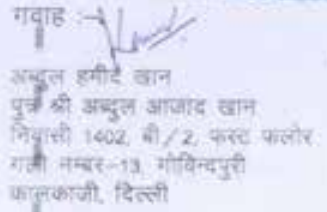 गवाह :-
अब्दुल हमीद खान
पुत्र श्री अब्दुल आजाद खान
निवासी 1402, बी/2, फस्ट फलोर
गली नम्बर-13, गोविन्दपुरी
कालकाजी, दिल्ली